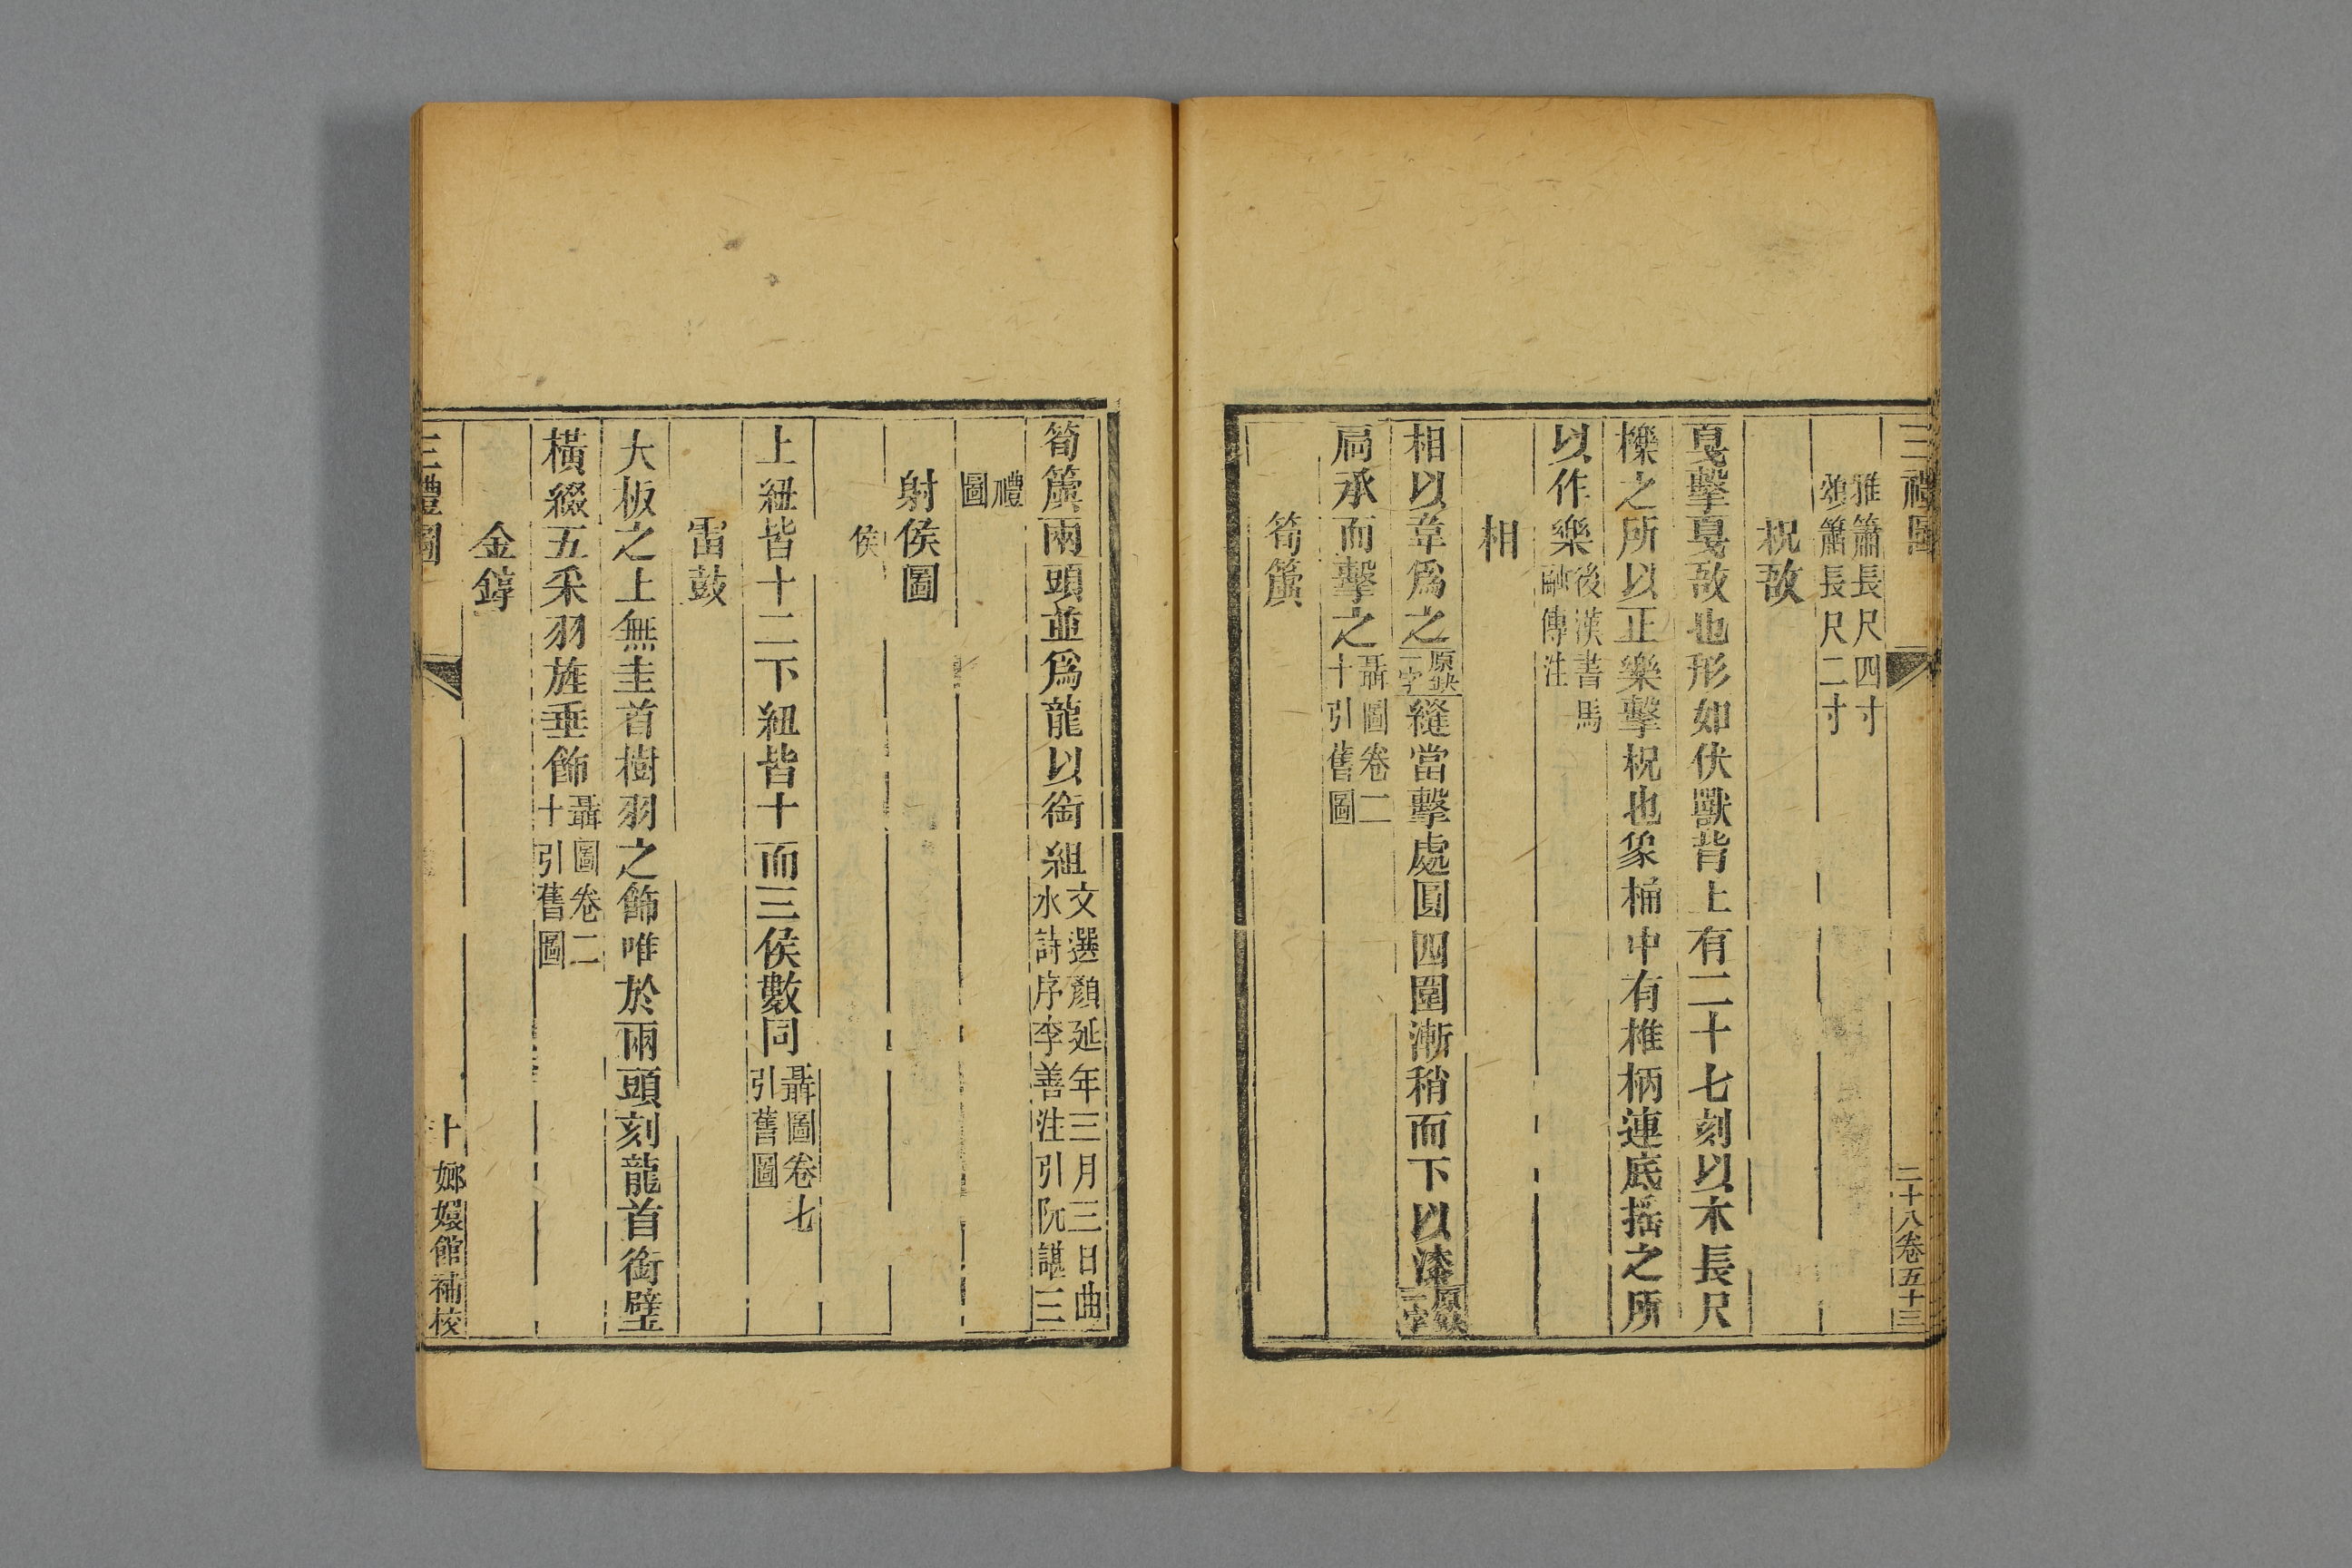 三禮圖
二十八卷五十三
雅簫長尺四寸
頌簫長尺二寸
柷敔
戛擊戛敔也形如伏獸背上有二十七刻以木長尺
櫟之所以正樂擊柷也象桶中有椎柄連底搖之所
以作樂後漢書馬融傳注
相
相以韋爲之原缺一字縫當擊處圓四圍漸稍而下以漆原缺一字
扃承而擊之聶圖卷二十引舊圖
筍簴
筍簴兩頭並爲龍以銜組文選顏延年三月三日曲水詩序李善注引阮諶三
禮圖
射侯圖
侯
上紐皆十二下紐皆十而三侯數同聶圖卷七引舊圖
雷鼓
大板之上無圭首樹羽之飾唯於兩頭刻龍首銜璧
橫綴五采羽旌垂飾聶圖卷二十引舊圖
金錞
三禮圖
十
嫏嬛館補校